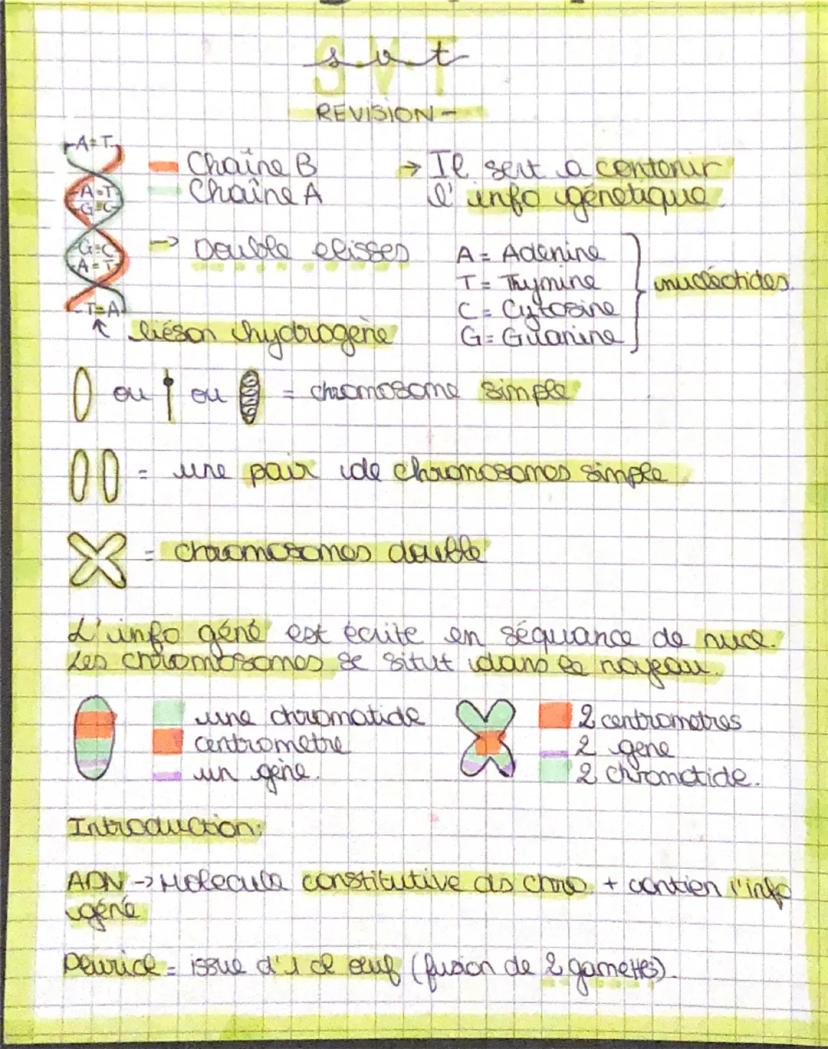 svt
SVT
REVISION -
A=T
A=T
G≡C
G≡C
A=T
T=A
Chaîne B
Chaîne A
→ Il sert a contenir
l'info génétique.
→ Double elisses
A = Adenine
T = Thymine
C = Cytosine
G = Guanine
nucléotides
liéson hydrogène
ou ou = chromosome simple
= une pair de chromosomes simple
= chromosomes double
L'info géné est écrite en séquance de nucé.
Les chromosomes se situt dans le noyeau.
une chromatide
centromètre
un gène.
2 centrometres
2 gene
2 chromatide.
Introduction:
ADN → Molecule constitutive ds chro + contien l'info
géné
= issue d'1 œuf (fusion de 2 gamettes).